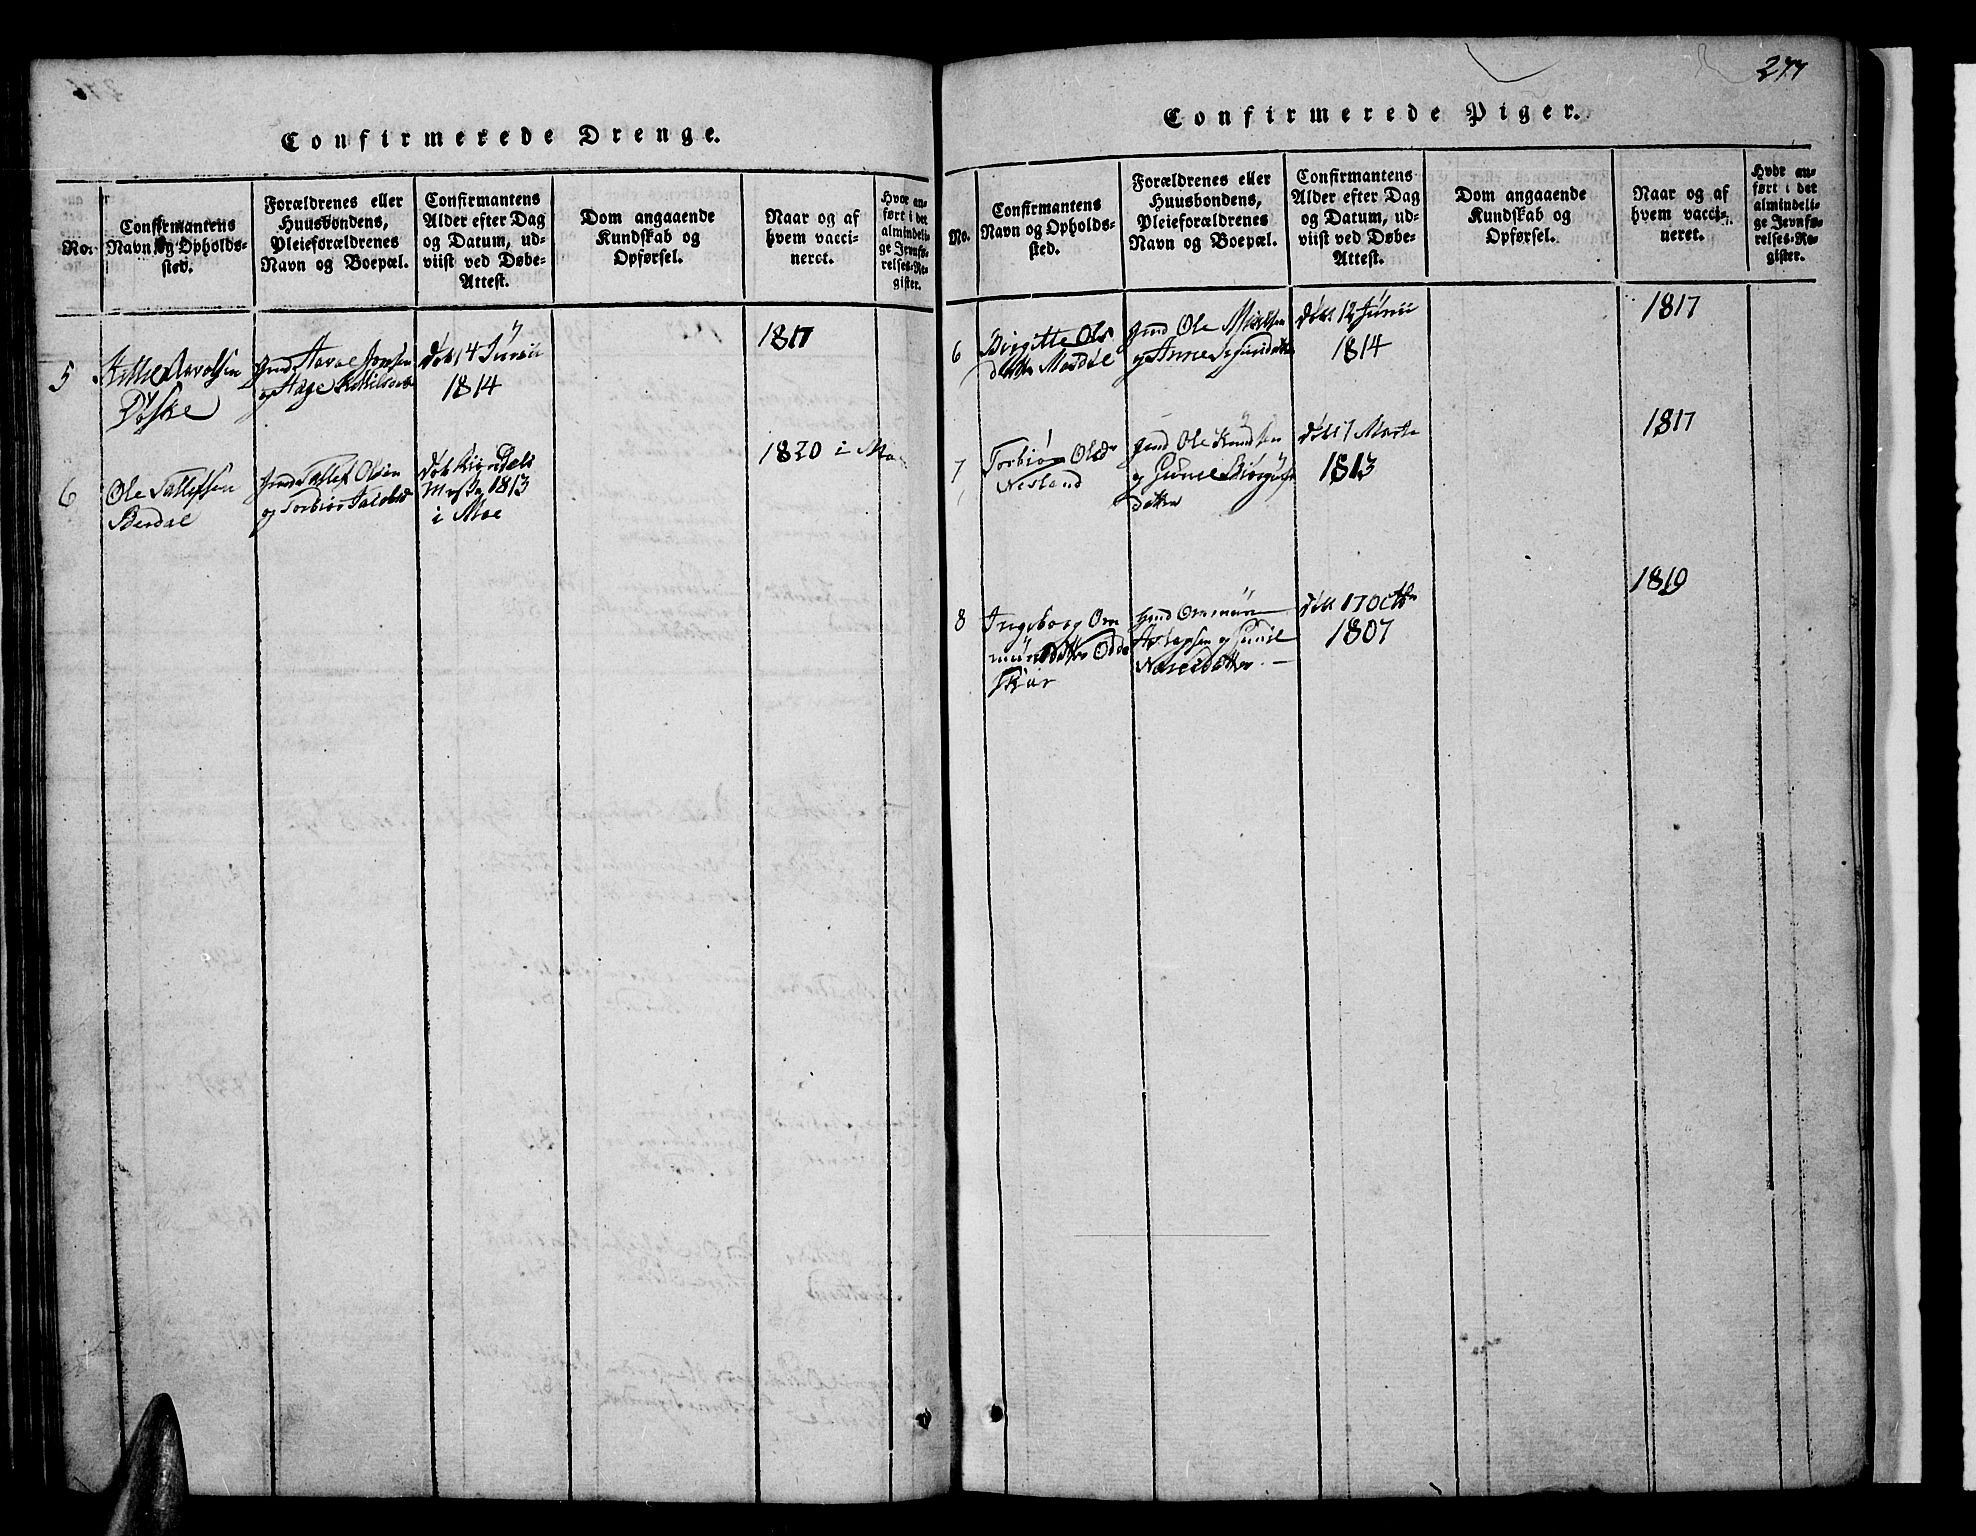 277
Confirmerede Drenge.
No.
Confirmantens
Navn og Opholds-
sted.
Forældrenes eller
Huusbondens,
Pleieforældrenes
Navn og Boepæl.
Confirmantens
Alder efter Dag
og Datum, ud-
viist ved Døbe-
Attest.
Dom angaaende
Kundskab og
Opførsel.
Naar og af
hvem vacci-
neret.
Hvor an-
ført i det
almindeli-
ge Jevnfø-
relses-Re-
gister.
5
Dyske
Gmd Aavol
og Aage
Døbt 4 Junii
1814
1817
6
Ole Tallefsen
Berdal
Gmd Tallef Olsen
og Torbiør
Døbt Kyndels
1813
i Moe
1820 i Mo
Confirmerede Piger.
No.
Confirmantens
Navn og Opholds-
sted.
Forældrenes eller
Huusbondens,
Pleieforældrenes
Navn og Boepæl.
Confirmantens
Alder efter Dag
og Datum, ud-
viist ved Døbe-
Attest.
Dom angaaende
Kundskab og
Opførsel.
Naar og af
hvem vacci-
neret.
Hvor an-
ført i det
almindeli-
ge Jevnfø-
relses-Re-
gister.
6
Birgitte Ols
datter
Gmd Ole
og Anne
Døbt 12 Junii
1814
1817
7
Torbiør Olsdr
Nesland
Gmd Ole Knudsen
og Gunil
datter
Døbt 7 Marts
1813
1817
8
Ingeborg Om
mundsdatter Odde
skar
Gmd Ommun
Aslagsen og Gunil
datter
Døbt 17 Octbr
1807
1819